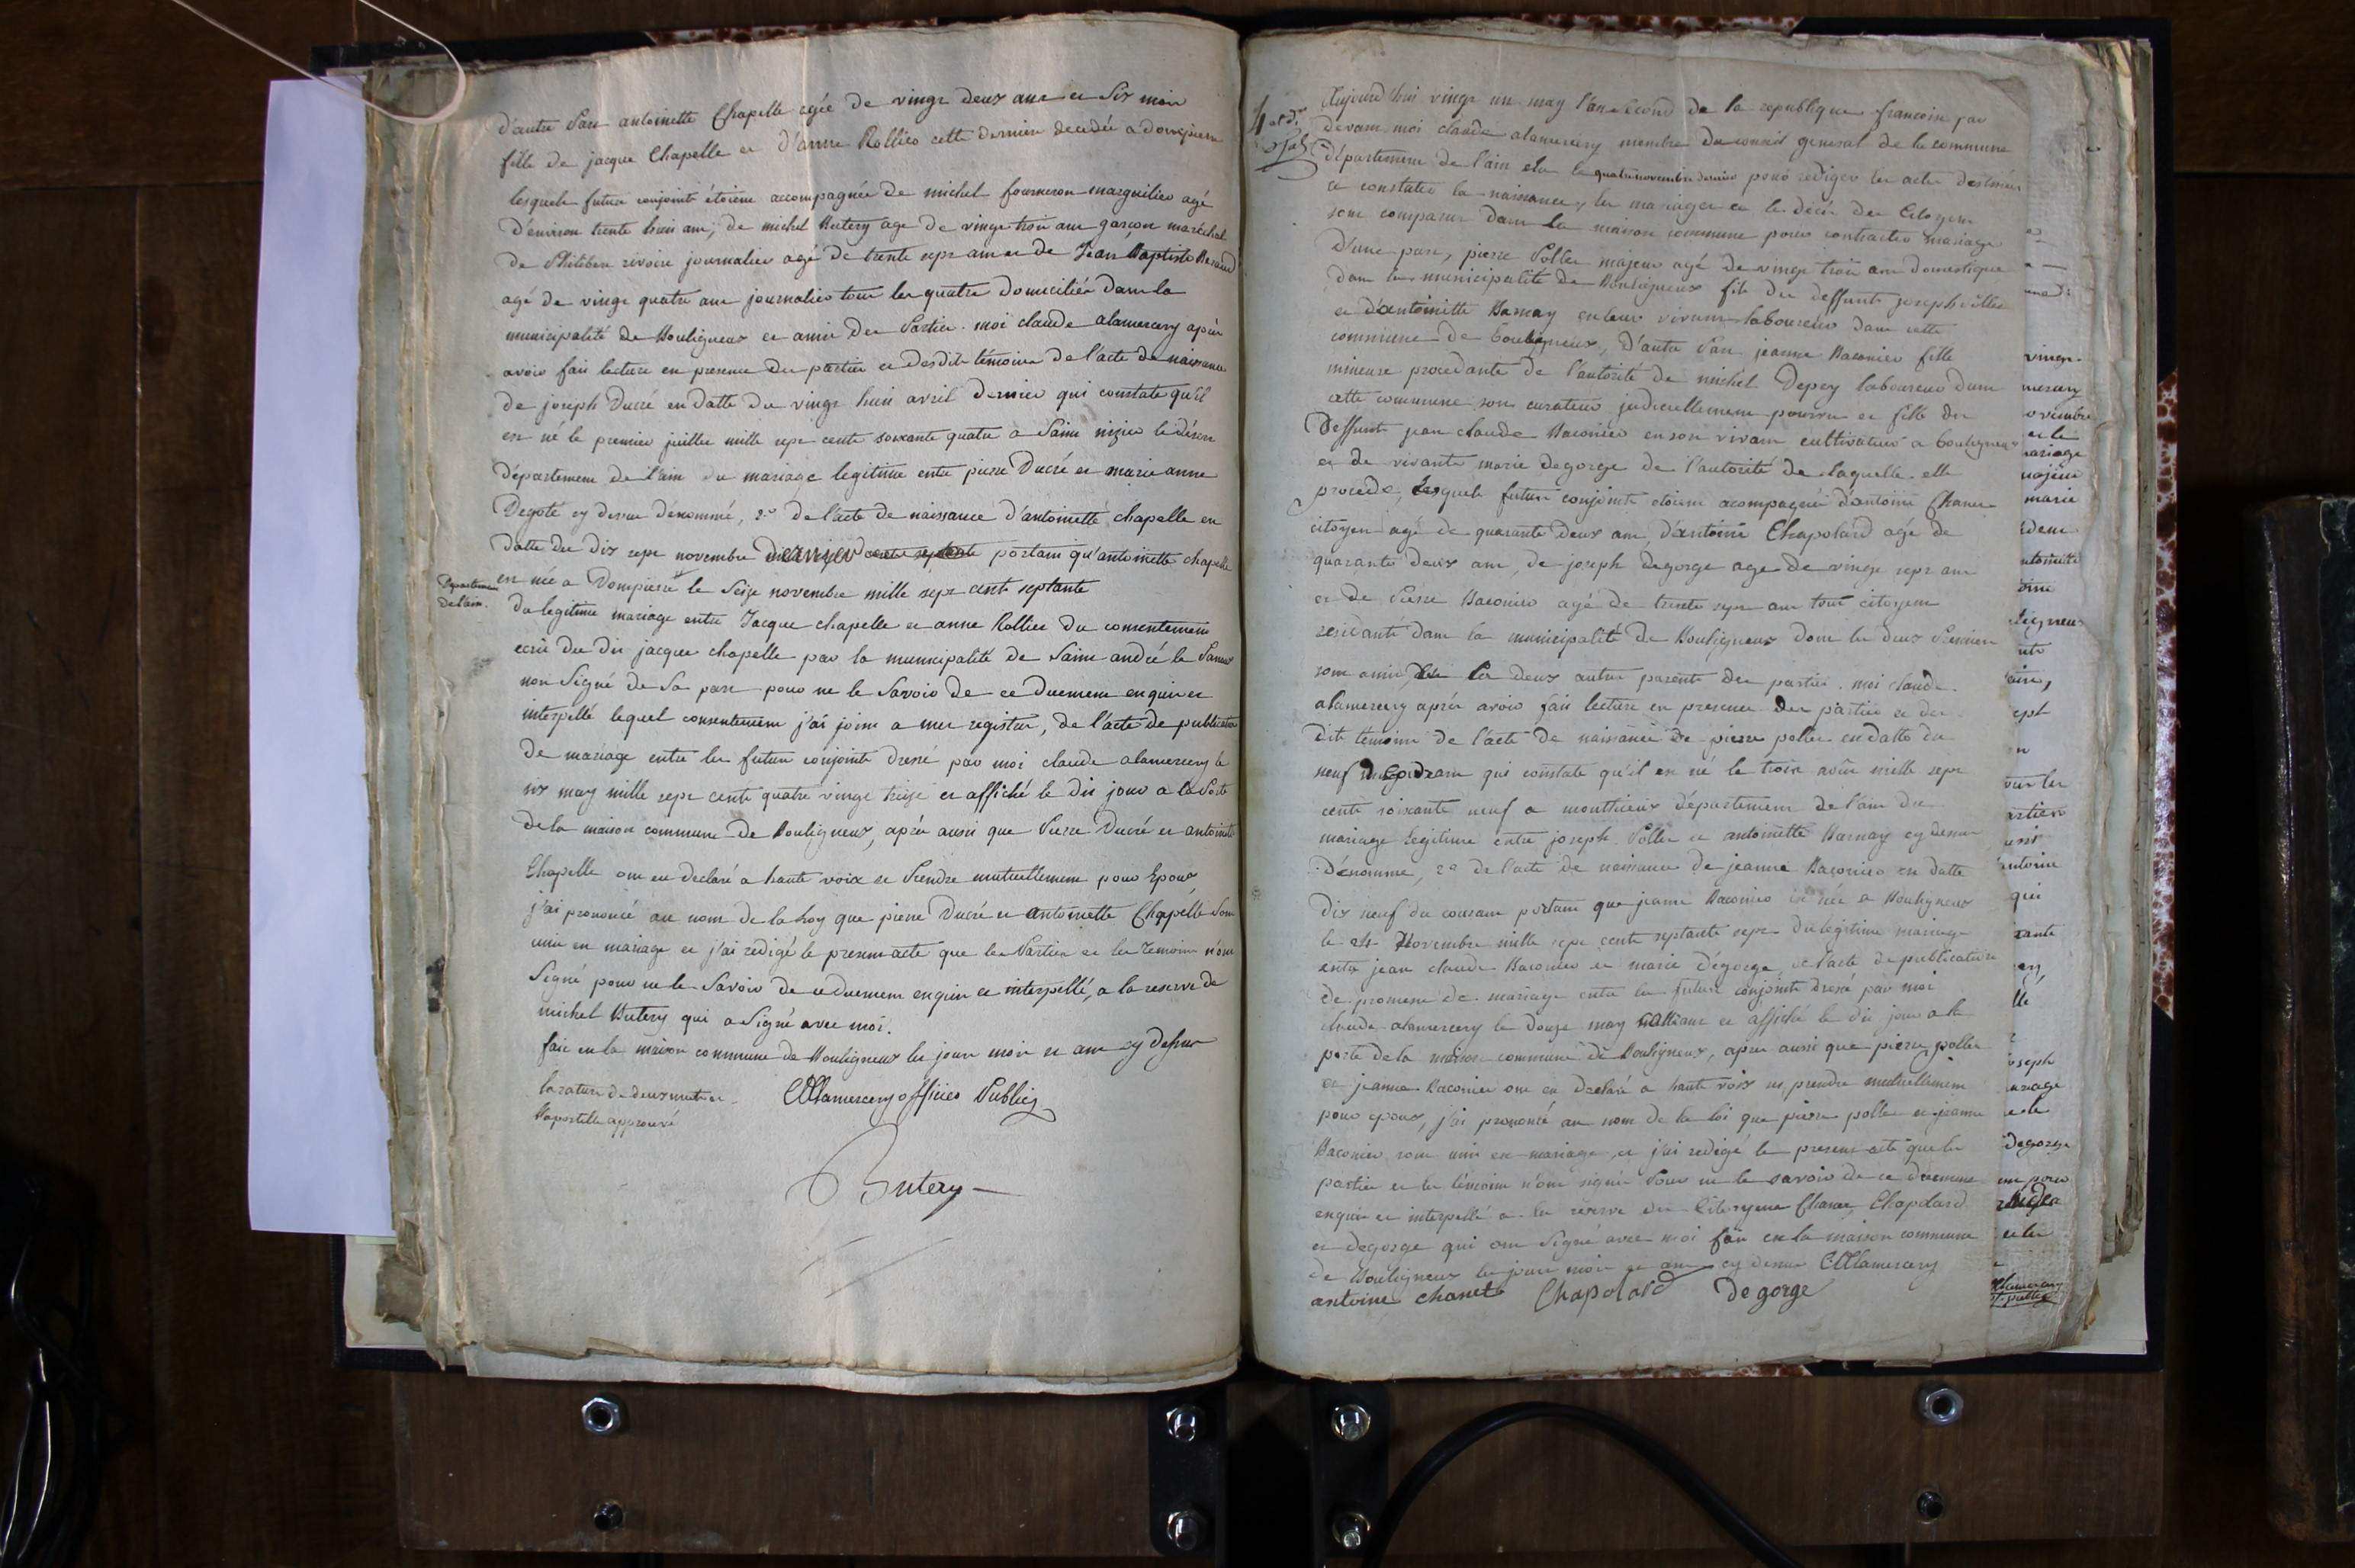 d'autre part antoinette Chapelle agée de vingt deux ans et six mois
fille de jacque Chapelle et d'anne Rollier cette derniere decedée a dompierre
lesquels futurs conjoints étoient accompagnée de michel fourneron marguilier agé
d'environ trente huit ans, de michel Butery age de vingt trois ans garçon maréchal
de Philibert rivoire journalier agé de trente sept ans et de Jean Baptiste
agé de vingt quatre ans journalier tous les quatre domiciliés dans la
municipalité de Bouligneux et amis des Parties. moi claude alamercery après
avoir fait lecture en presence des parties et desdits témoins de l'acte de naissance
de joseph Ducré en datte du vingt huit avril dernier qui constate qu'il
est né le premier juillet mille sept cents soixante quatre a Saint nizier le désert
département de l'ain du mariage legitime entre pierre Ducré et marie anne
Degoté cy devant dénommé, 2º de l'acte de naissance d'antoinette chapelle en
datte du dix sept novembre dernier portant qu'antoinette chapelle
est née a Dompierre le Seize novembre mille sept cents septante
Departement
de l'ain.
du legitime mariage entre Jacque chapelle et anne Rollier du consentement
ecrit du dit jacque chapelle par la municipalité de Saint andré le Panoux
non signé de sa part pour ne le Savoir de ce duement enquis et
interpellé lequel consentement j'ai joint a mes registres, de l'acte de publication
de mariage entre les futurs conjoints dressé par moi claude alamercery le
six may mille sept cents quatre vingt treize et affiché le dit jour a la Porte
de la maison commune de Bouligneux, après aussi que Pierre Ducré et antoinette
Chapelle ont eu declaré a haute voix se Prendre mutuellement pour Epoux
j'ai prononcé au nom de la Loy que pierre Ducré et antoinette Chapelle sont
unis en mariage et j'ai redigé le present acte que les Parties et les temoins n'ont
Signé pour ne le Savoir de ce duement enquis et interpellé, a la reserve de
michel Butery qui a Signé avec moi.
fait en la maison commune de Bouligneux les jour mois et ans cy dessus
la rature de deux mots et
l'apostille approuvé
CAlamercery officier Public
Butery
Aujourd'hui vingt un may l'an second de la republique francoise par
devant moi claude alamercery membre du conseil general de la commune
département de l'ain elu le quatre novembre dernier pour rediger les actes destinés
a constater la naissance, les mariages et le décès des Citoyens
sont comparus dans la maison commune pour contracter mariage
D'une part, pierre Pollet majeur agé de vingt trois ans domestique
dans la municipalité de Bouligneux fils du deffunt joseph Pollet
et d'antoinette Barnay en leur vivant laboureur dans cette
commune de bouligneux, d'autre Part jeanne Baconier fille
mineure procedante de l'autorité de michel Depey laboureur dans
cette commune son curateur judiciellement pourvu et fille du
Deffunt jean claude Baconier en son vivant cultivateur a bouligneux
et de vivante marie degorge de l'autorité de laquelle elle
procede, lesquels futurs conjoints etoient acompagnés d'antoine Chanet
citoyen agé de quarante deux ans, d'antoine Chapolard agé de
quarante deux ans, de joseph degorge age de vingt sept ans
et de Pierre Baconier agé de trente sept ans tous citoyens
residants dans la municipalité de Bouligneux dont les deux Premiers
sont amis, et les deux autres parents des parties. moi claude
alamercery après avoir fait lecture en presence des parties et des
dits témoins de l'acte de naissance de pierre pollet en datte du
neuf qui constate qu'il est né le trois août mille sept
cents soixante neuf a monthieux département de l'ain du
mariage legitime entre joseph Pollet et antoinette Barnay cy dessus
Dénommé, 2º de l'acte de naissance de jeanne Baconier en datte
dix neuf du courant portant que jeanne Baconier est née a Bouligneux
le 24 Novembre mille sept cents septante sept du legitime mariage
entre jean claude Baconier et marie dégorge, de l'acte de publication
de promesse de mariage entre les futurs conjoints dressé par moi
claude alamercery le douze may et affiché le dit jour a la
porte de la maison commune de Bouligneux, après aussi que pierre pollet
et jeanne Baconier ont eu declaré a haute voix se prendre mutuellement
pour epoux, j'ai prononcé au nom de la loi que pierre pollet et jeanne
Baconier sont unis en mariage, et j'ai redigé le present acte que les
parties et les témoins n'ont signé Pour ne le savoir de ce duement
enquis et interpellé a la reserve des Citoyens Chanet, Chapolard
et degorge qui ont Signé avec moi fait en la maison commune
de Bouligneux les jour mois et ans cy dessus CAlamercery
antoine chanet Chapolard Degorge